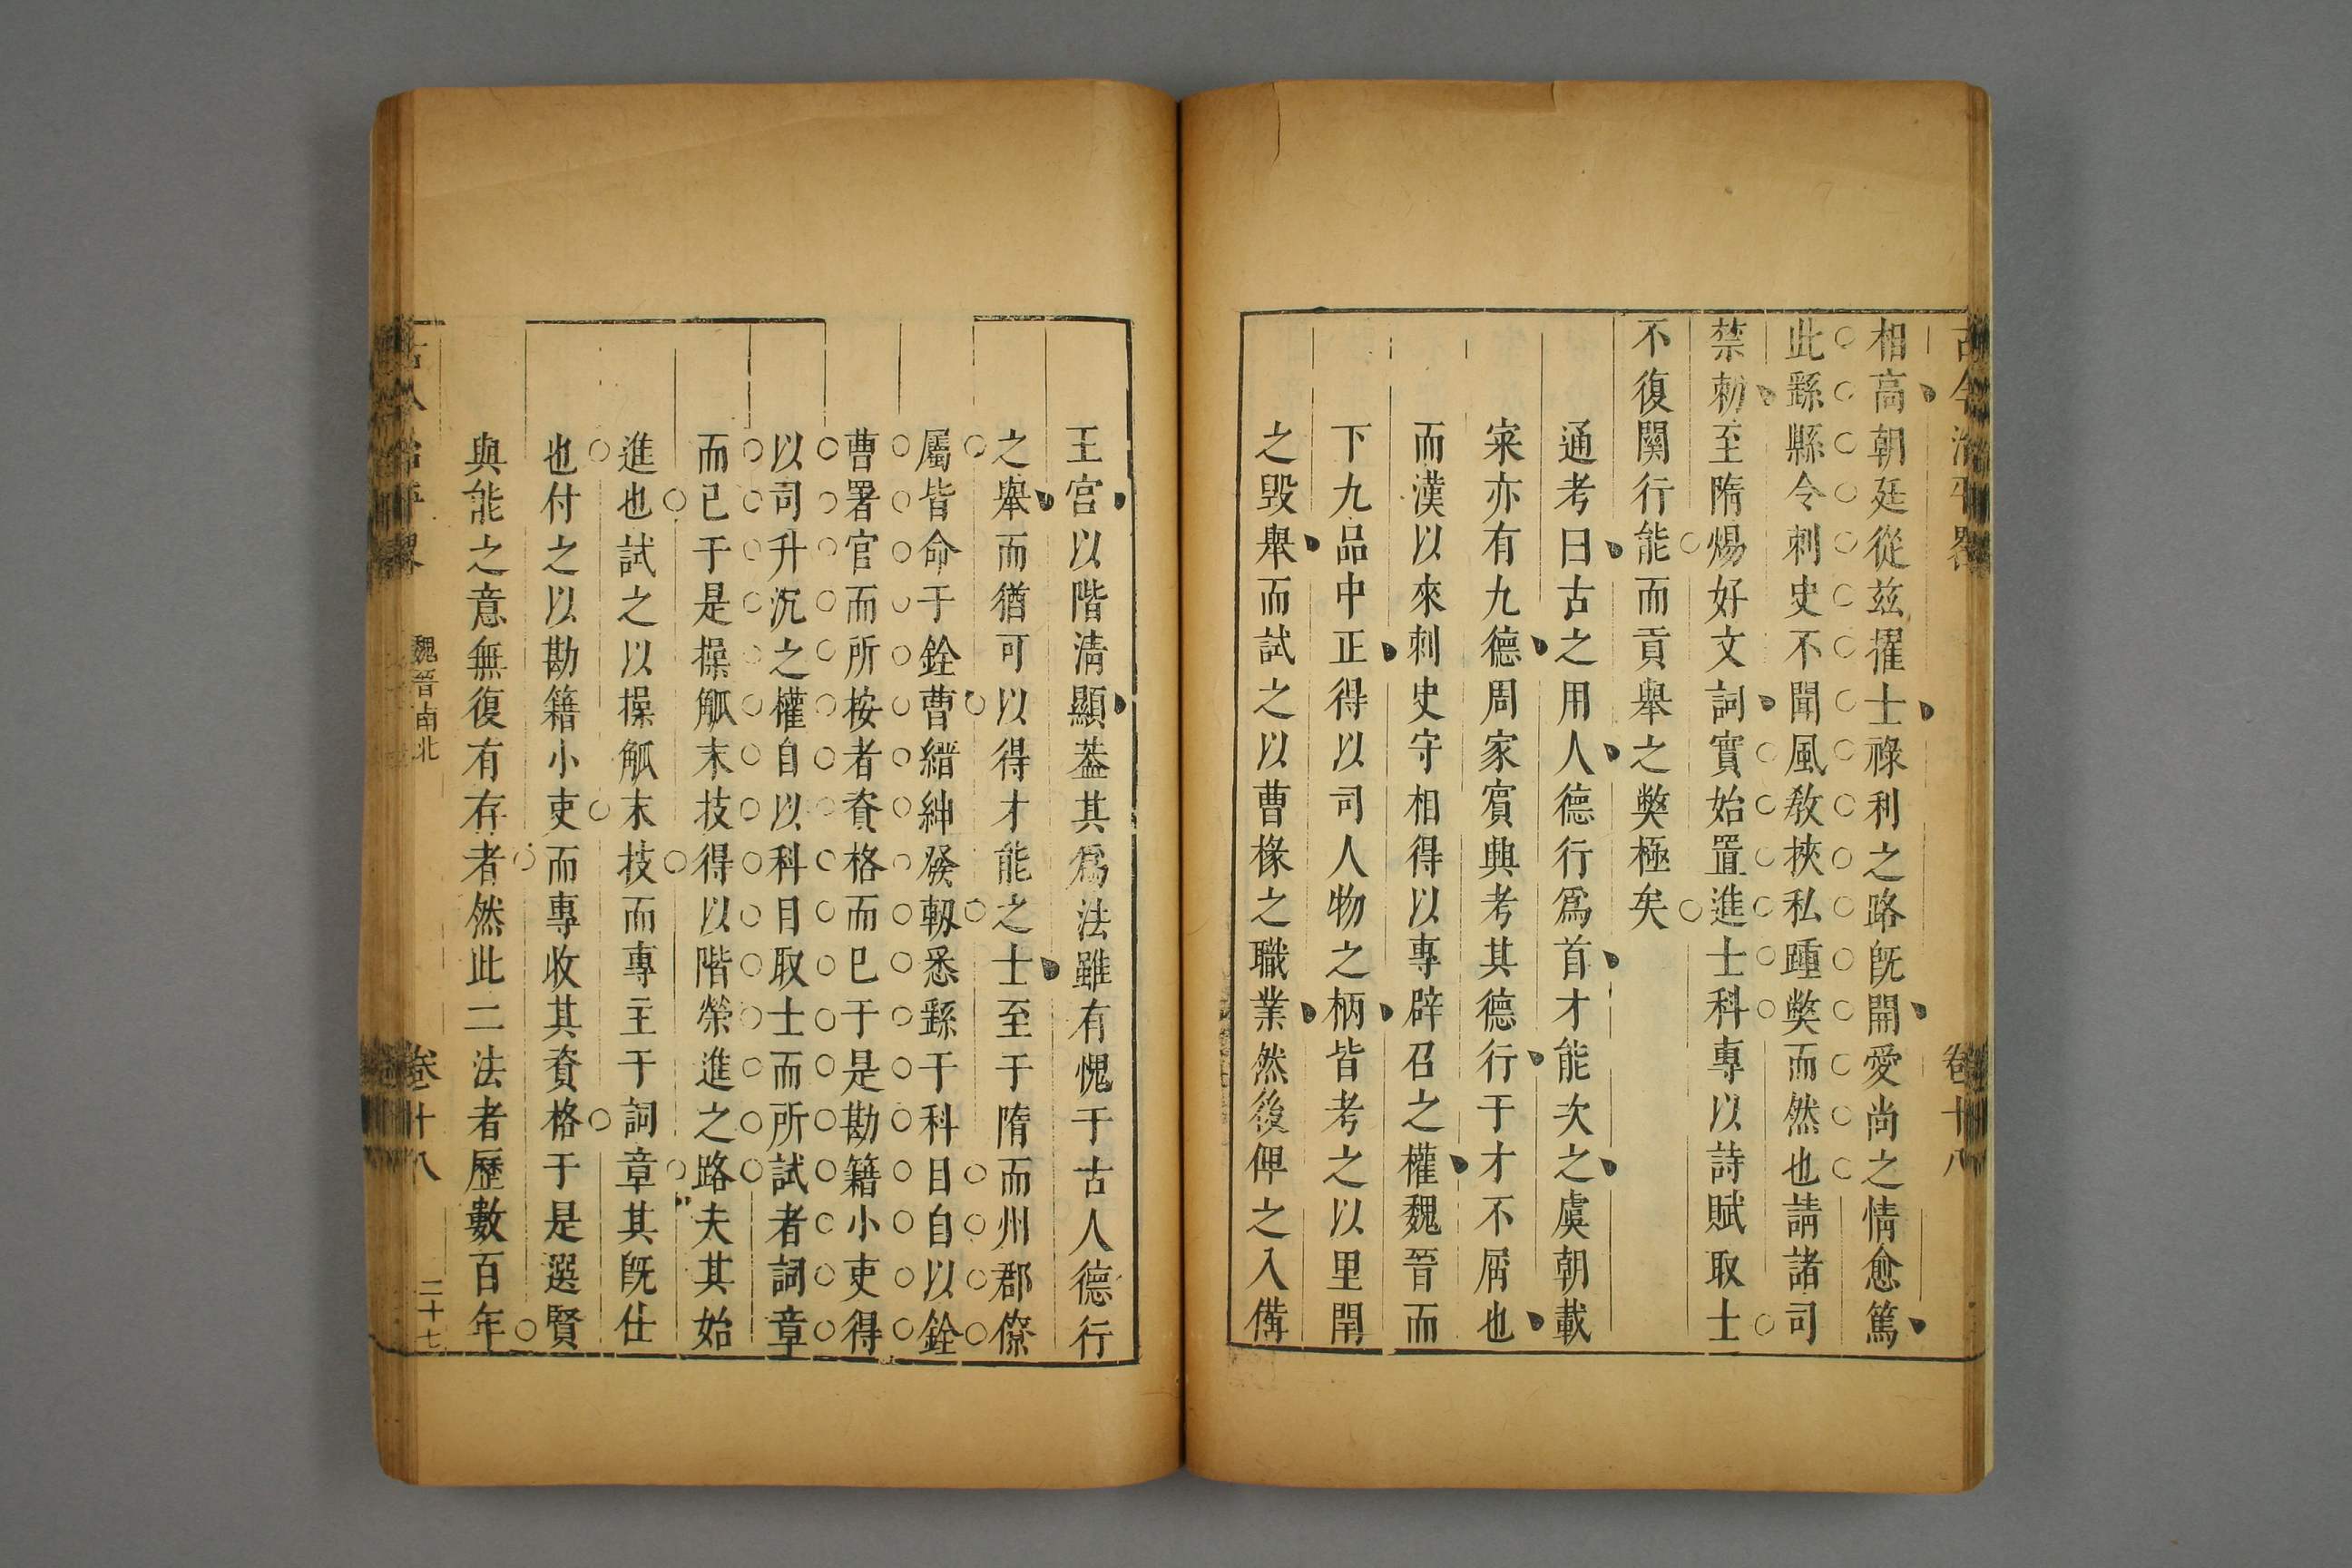 古今治平畧
卷十八
相高朝廷從茲擢士祿利之路旣開愛尚之情愈篤
此繇縣令刺史不聞風敎挾私踵獘而然也請諸司
禁勑至隋煬好文詞實始置進士科專以詩賦取士
不復關行能而貢舉之獘極矣
通考曰古之用人德行爲首才能次之虞朝載
寀亦有九德周家賓興考其德行于才不屑也
而漢以來刺史守相得以專辟召之權魏晉而
下九品中正得以司人物之柄皆考之以里閈
之毀舉而試之以曹掾之職業然後俾之入備
王宮以階淸顯葢其爲法雖有愧于古人德行
之舉而猶可以得才能之士至于隋而州郡僚
屬皆命于銓曹縉紳發軔悉繇于科目自以銓
曹署官而所按者資格而已于是勘籍小吏得
以司升沉之權自以科目取士而所試者詞章
而已于是操觚末技得以階榮進之路夫其始
進也試之以操觚末技而專主于詞章其旣仕
也付之以勘籍小吏而專收其資格于是選賢
與能之意無復有存者然此二法者歷數百年
魏晉南北
卷十八
二十七